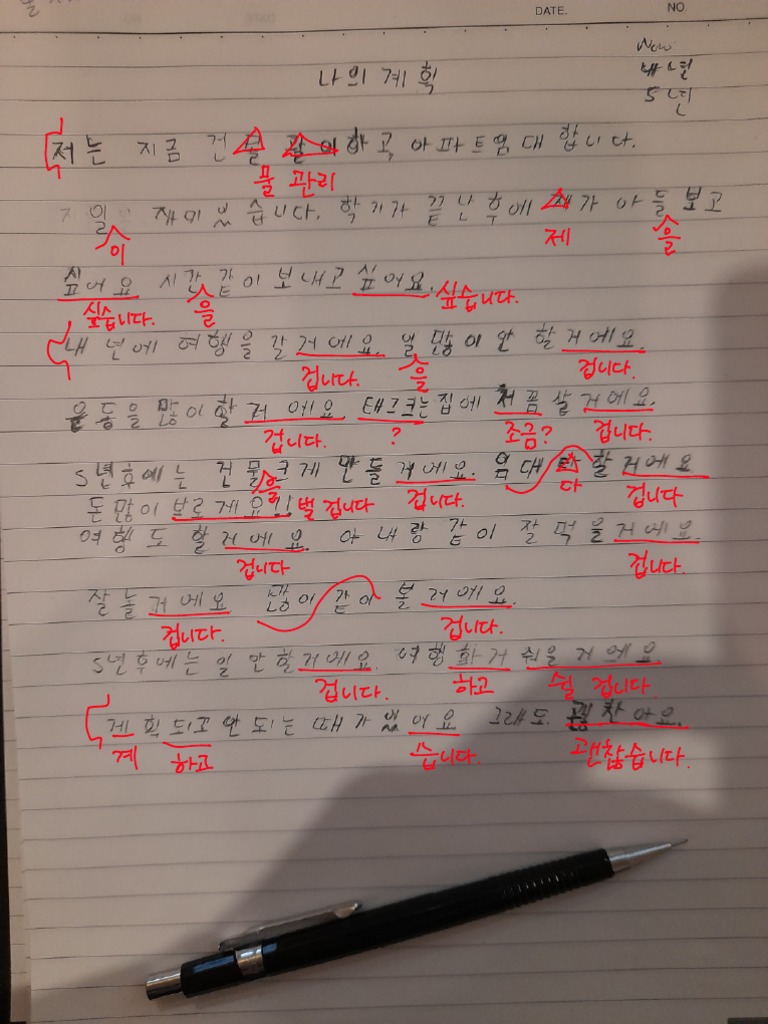 DATE. NO.
나의 계획
Now
내년
5년
저는 지금 건물 하고 아파트 임대 합니다.
물 관리
일 재미있습니다. 학기가 끝난 후에 가 아들 보고
이 제 을
싶어요 시간 같이 보내고 싶어요.
싶습니다. 을 싶습니다.
내 년에 여행을 갈 거에요. 일 많이 안 할 거에요.
겁니다. 을 겁니다.
운동을 많이 할 거에요 태크크는 집에 저꼼 살 거에요.
겁니다. ? 조금? 겁니다.
5년후에는 건물 크게 만들 거에요. 임대 할 거에요
을 겁니다. 다 겁니다
돈 많이 브로게요!! 벌 겁니다
여행도 할 거에요. 아내랑 같이 잘 먹을 거에요.
겁니다 겁니다.
잘 놀 거에요 많이 같이 볼 러에요.
겁니다. 겁니다.
5년후에는 일 안할 거에요. 여행 하거 쉬을 거에요
겁니다. 하고 쉴 겁니다
게획 되고 안 되는 때가 있어요 그래도. 괜찬아요.
계 하고 습니다. 괜찮습니다.